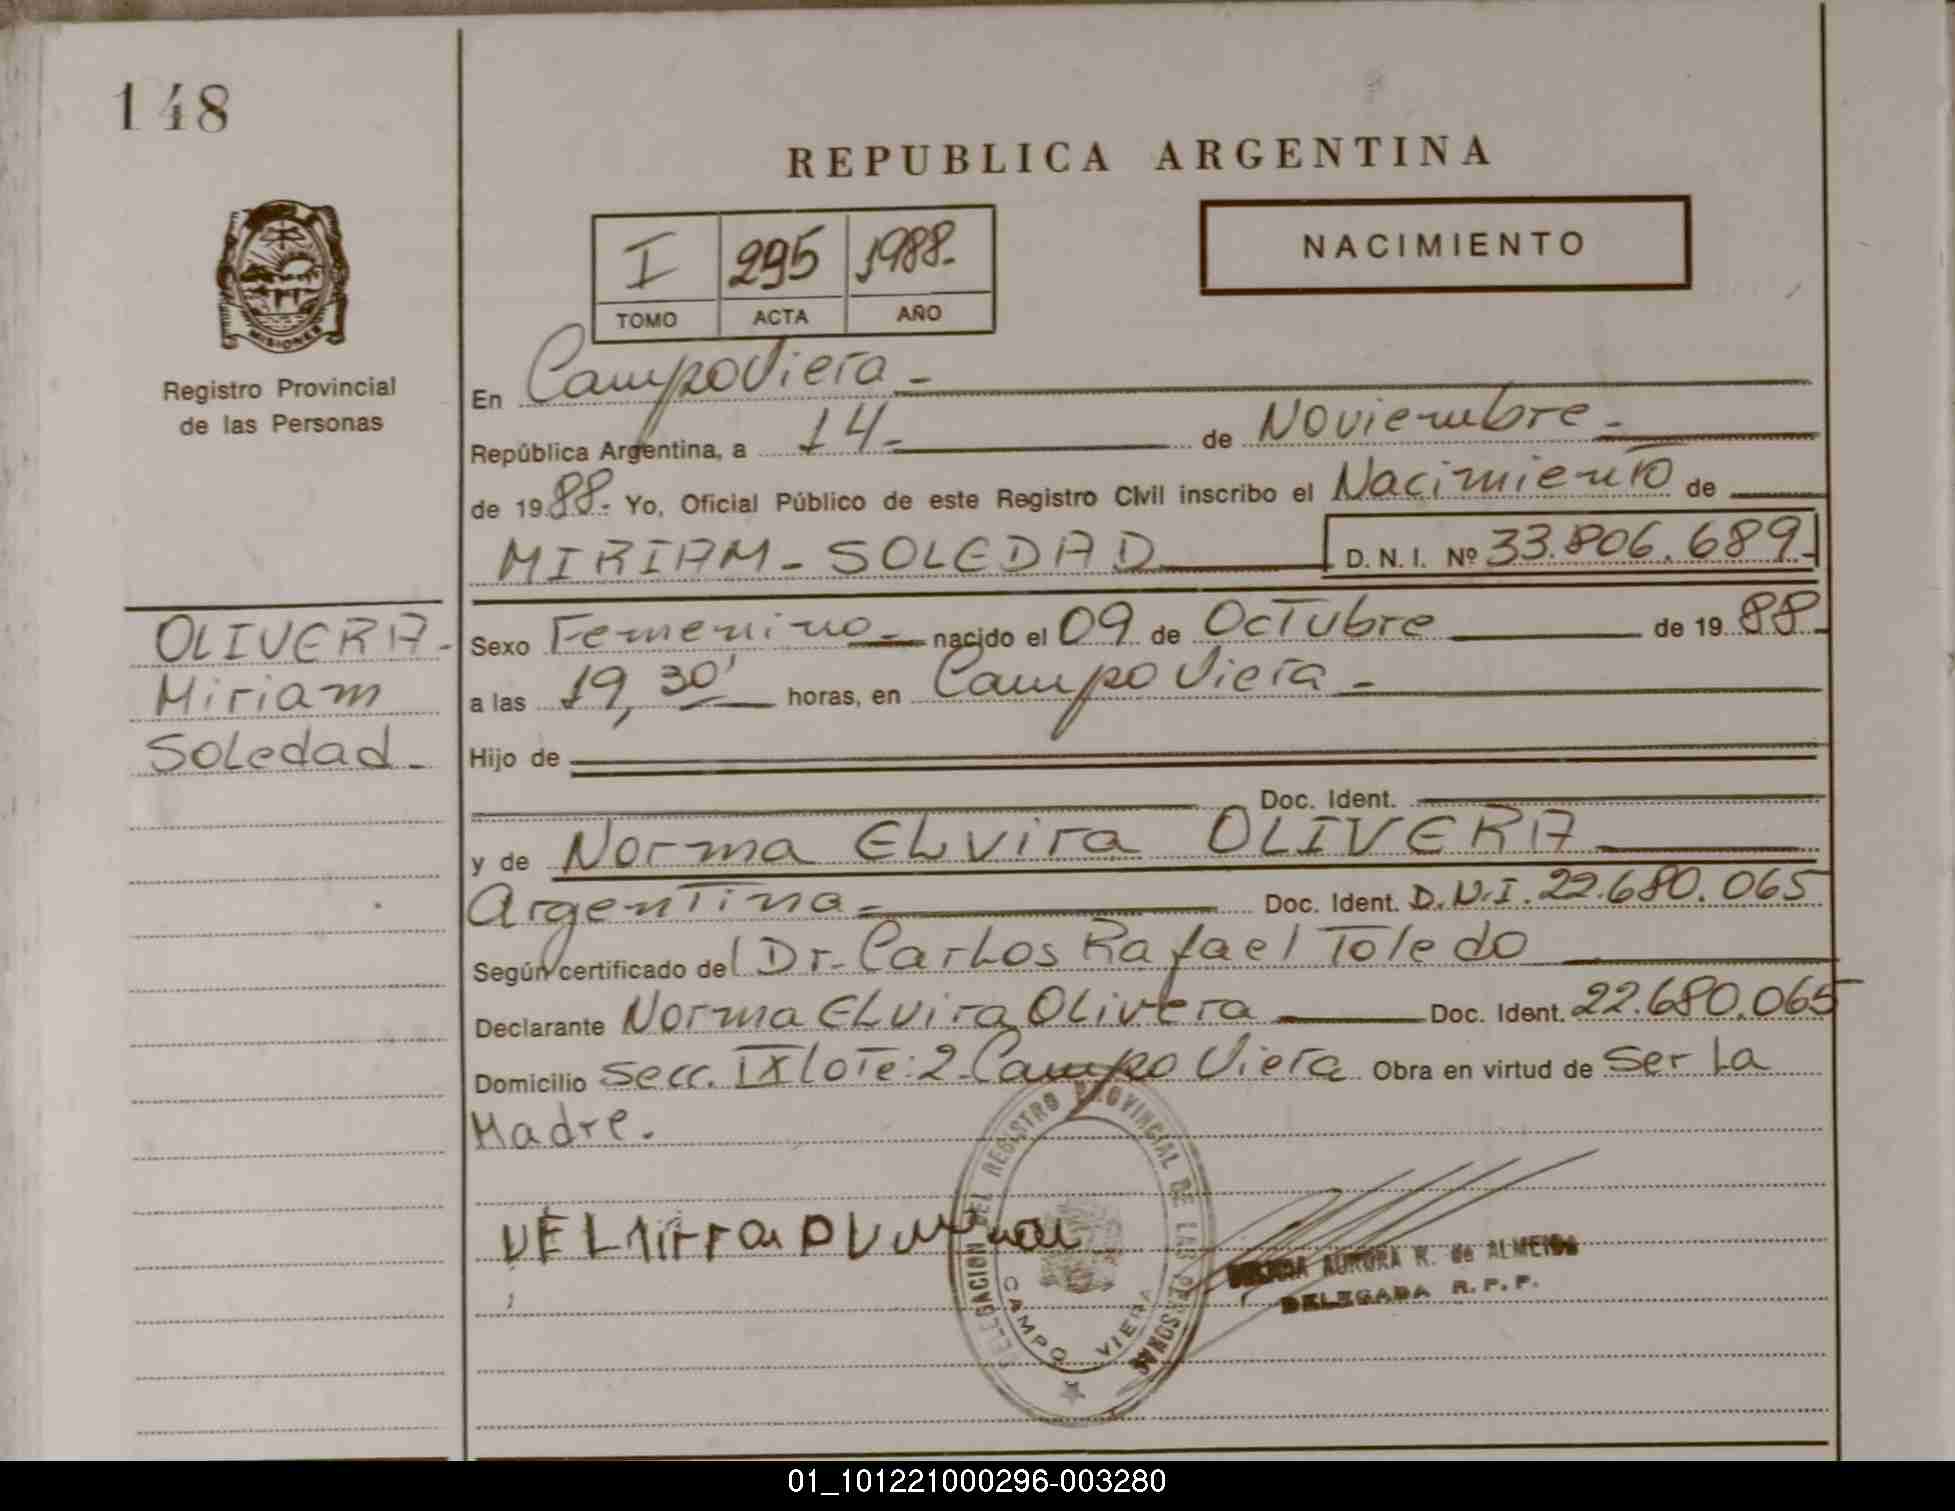 148
REPUBLICA ARGENTINA
I 295 1988.-
TOMO ACTA AÑO
NACIMIENTO
MISIONES
Registro Provincial
de las Personas
En Campo Viera.-
República Argentina, a 14.- de Noviembre.-
de 1988.- Yo, Oficial Público de este Registro Civil inscribo el Nacimiento de
MIRIAM - SOLEDAD D. N. I. Nº 33.806.689.-
OLIVERA.-
Miriam
Soledad.-
Sexo Femenino.- nacido el 09 de Octubre de 1988.-
a las 19,30' horas, en Campo Viera.-
Hijo de
Doc. Ident.
y de Norma ELvira OLIVERA
Argentina.- Doc. Ident. D.N.I. 22.680.065
Según certificado del Dr. Carlos Rafael Toledo
Declarante Norma ELvira Olivera Doc. Ident. 22.680.065
Domicilio Secc. IX lote: 2 - Campo Viera Obra en virtud de Ser La
Madre.
DELEGACION DEL REGISTRO PROVINCIAL DE LAS PERSONAS
CAMPO VIERA
AURORA R. de ALMEIDA
DELEGADA R. P. P.
01_101221000296-003280